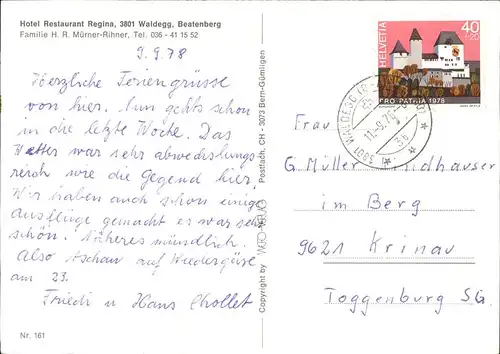 Hotel Restaurant Regina, 3801 Waldegg, Beatenberg
Familie H. R. Mürner-Rihner, Tel. 036 - 41 15 52
9.9.78
Herzliche Feriengrüsse
von hier. Nun gehts schon
in die letzte Woche. Das
Wetter war sehr abwechslungs
reich wie die Gegend hier.
Wir haben auch schon einige
Ausflüge gemacht es war sehr
schön. Näheres mündlich.
Also Tschau auf Wiedergüse
am 23.
Friedi u Hans Chollet
Nr. 161
Copyright by WIRO-VERLAG Postfach, CH - 3073 Bern-Gümligen
HELVETIA
40
+20
PRO PATRIA 1978
3801 WALDEGG (BEATENBERG)
11.-9.78
Frau
G. Müller
im Berg
9621 Krinau
Toggenburg SG.